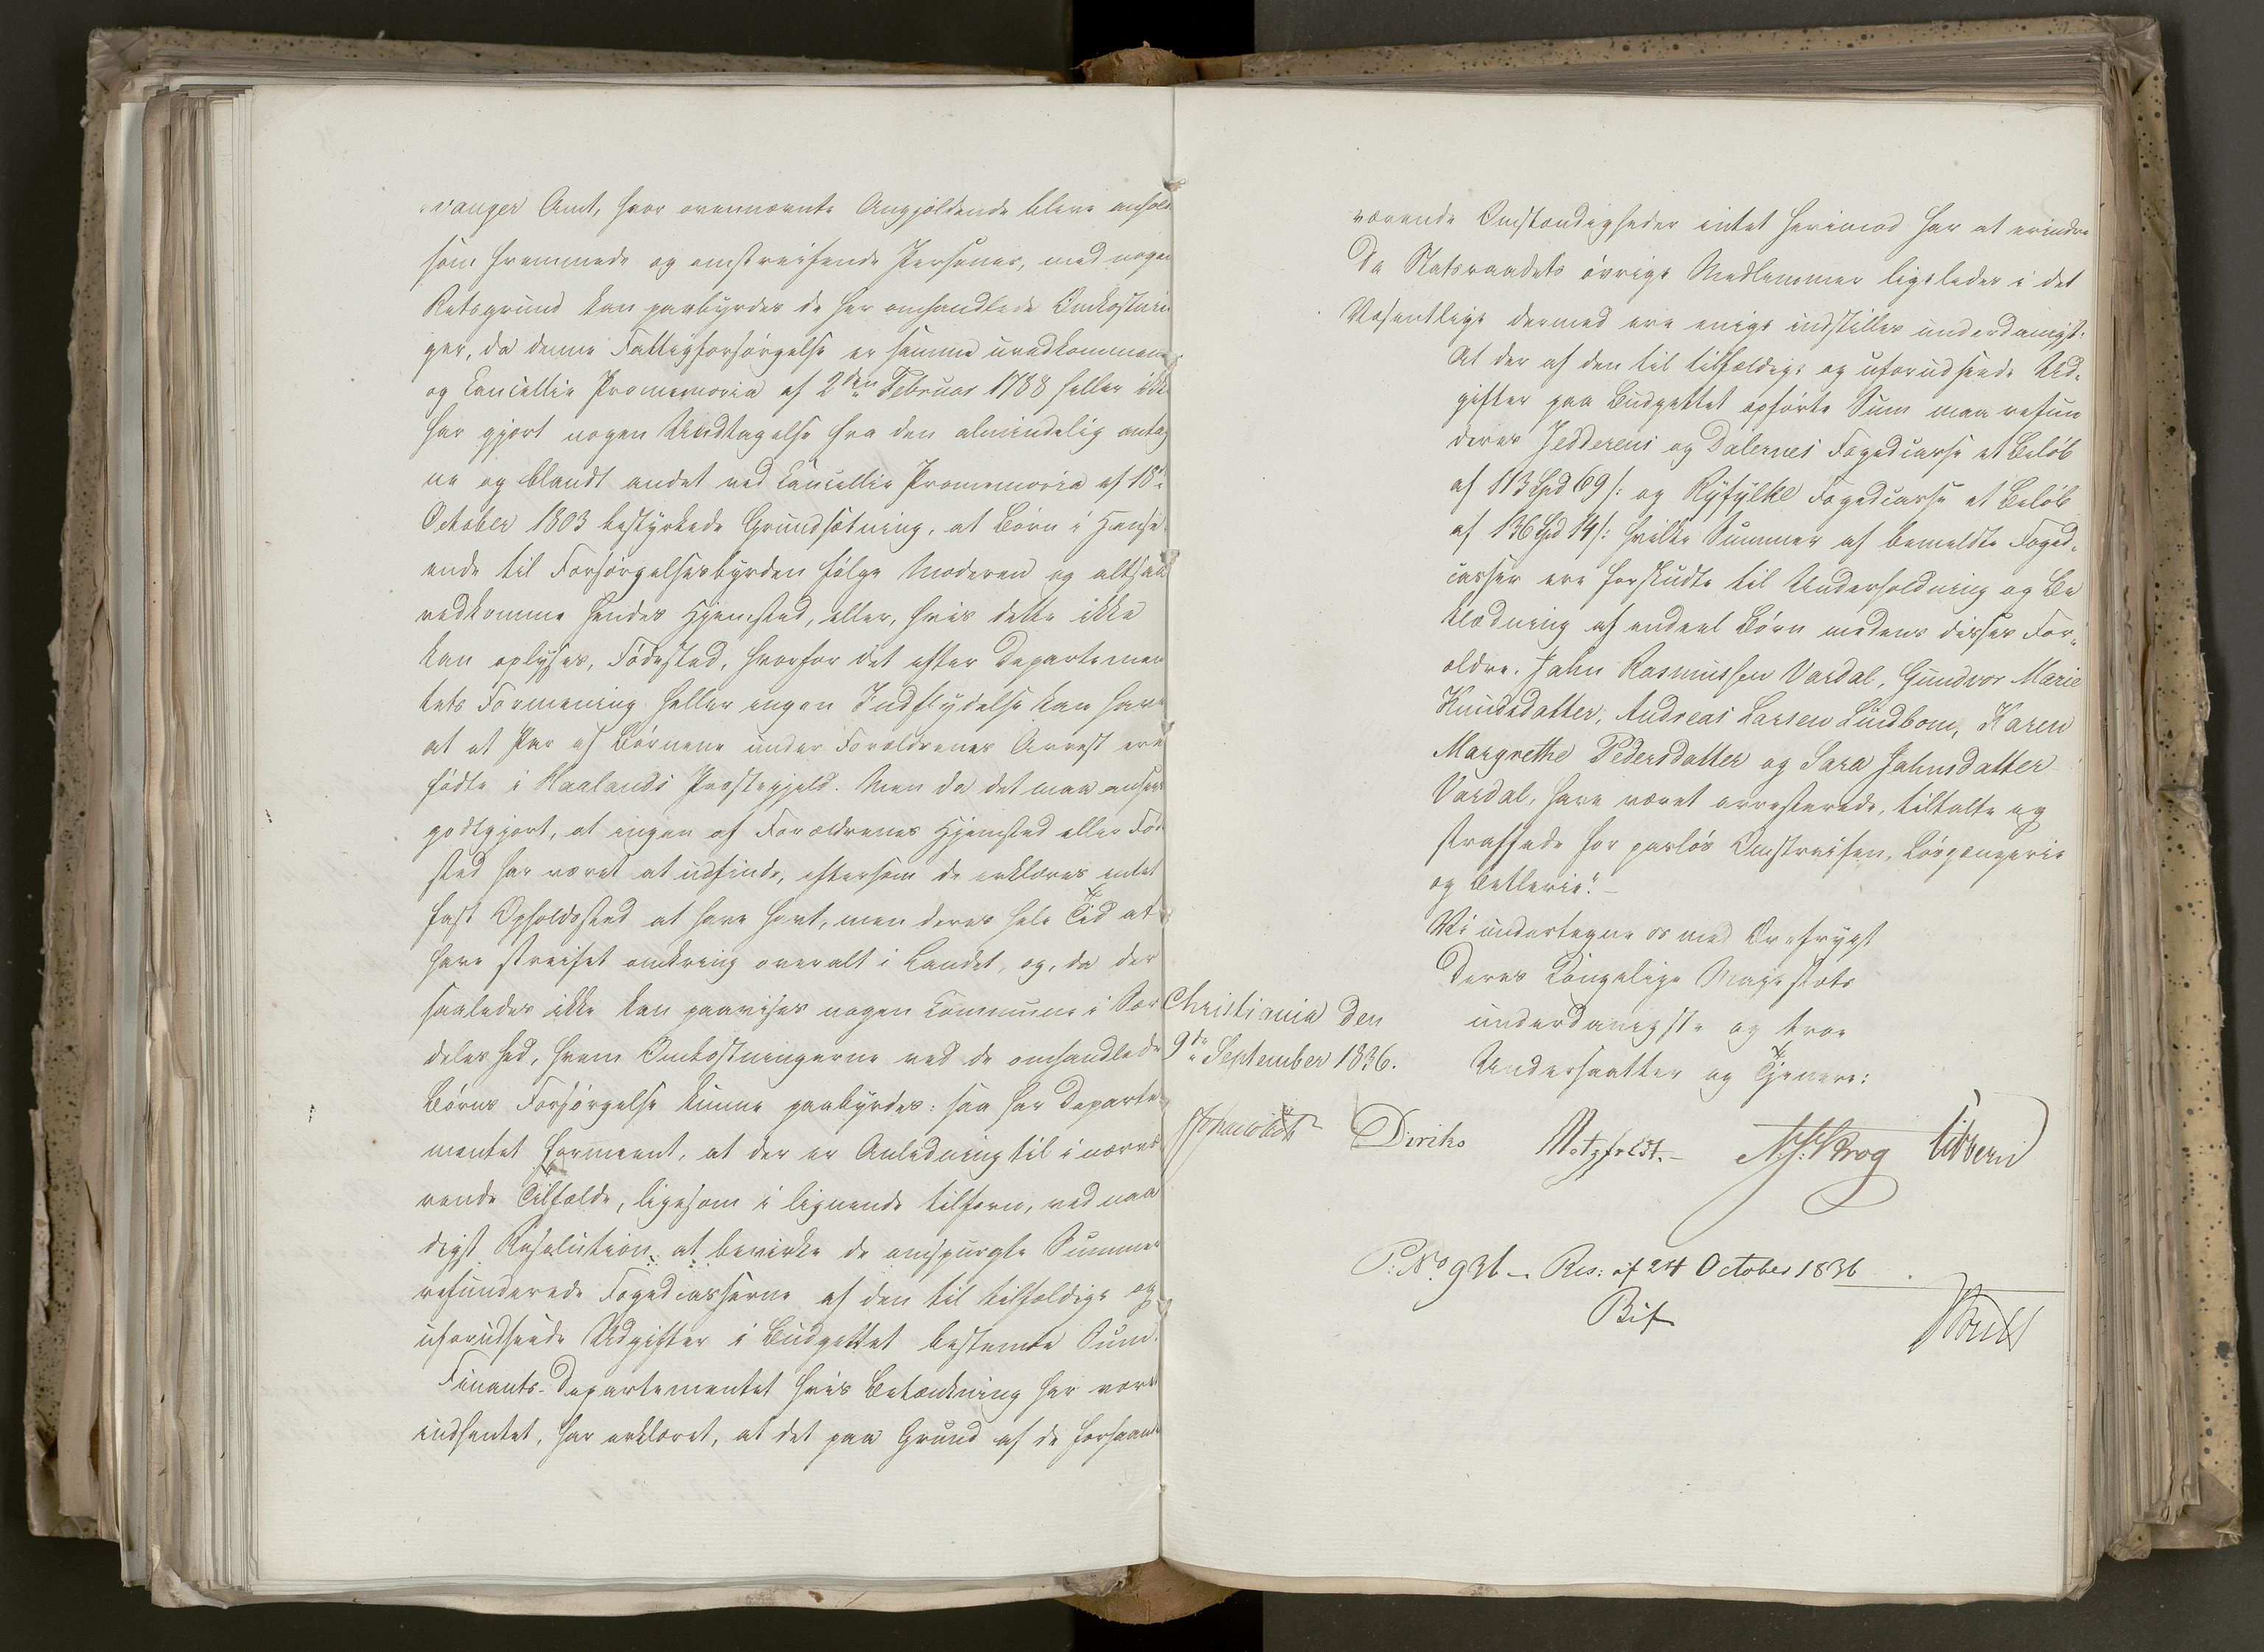 vanger Amt, hvor ovennævnte Angjældende bleve anhold
som fremmede og omstreifende Personer, med nogen
Retsgrund kan paabyrdes de her omhandlede Omkostnin
ger, da denne Fattigforsørgelse er samme uvedkommende
og Cancellie Promemoria af 2den Februar 1788 heller ikke
har gjort nogen Undtagelse fra den almindelig antag
ne og blandt andet ved Cancellie Promemoria af 18de
October 1803 bestyrkede Grundsætning, at Børn i Hense
ende til Forsørgelsesbyrden følge Moderen og altsaa
vedkomme hendes Hjemsted, eller, hvis dette ikke
kan oplyses, Fødested, hvorfor det efter Departemen
tets Formening heller ingen Indflydelse kan have
at et Par af Børnene under Forældrenes Arrest ere
fødte i Haalands Præstegjeld. Men da det maa ansees
godtgjort, at ingen af Forældrenes Hjemsted eller Føde
sted har været at udfinde, eftersom de erklæres intet
fast Opholdssted at have havt, men deres hele Tid at
have streifet omkring overalt i Landet, og, da der
saaledes ikke kan paavises nogen Commune i Sær
deleshed, hvem Omkostningerne ved de omhandlede
Børns Forsørgelse kunne paabyrdes: saa har Departe
mentet formeent, at der er Anledning til i nærvæ
rende Tilfælde, ligesom i lignende tilforn, ved naa
digst Resolution at bevirke de omspurgte Summer
refunderede Fogedcasserne af den til tilfældige og
uforudseede Udgifter i Budgettet bestemte Sum.
Finants-Departementet hvis Betænkning har været
indhentet, har erklæret, at det paa Grund af de forhaan
værende Omstændigheder intet herimod har at erindre
Da Statsraadets øvrige Medlemmer ligeledes i det
Væsentlige dermed ere enige indstilles underdanigst:
At der af den til tilfældige og uforudseede Ud-
gifter paa Budgettet opførte Sum maa refun
deres Jedderens og Dalernes Fogedcasse et Beløb
af 113 Spd 69 s: og Ryfylke Fogedcasse et Beløb
af 136 Spd 14 s: hvilke Summer af bemeldte Foged-
casser ere forskudte til Underholdning og Be
klædning af endeel Børn medens disses For-
ældre. Jahn Rasmussen Vardal, Gundvor Marie
Knudsdatter, Andreas Larsen Lindbom, Karen
Margrethe Pedersdatter og Sara Jahnsdatter
Vardal, have været arresterede, tiltalte og
straffede for pasløs Omstreifen, Løsgængerie
og Betlerie."
Vi undertegne os med Ærefrygt
Deres Kongelige Majestæts
underdanigste og troe
Undersaatter og Tjenere:
Christiania den
9de September 1836.
Diriks Motzfeldt. Krog Vibe
P: No 936 – Res: af 24 October 1836
Bif